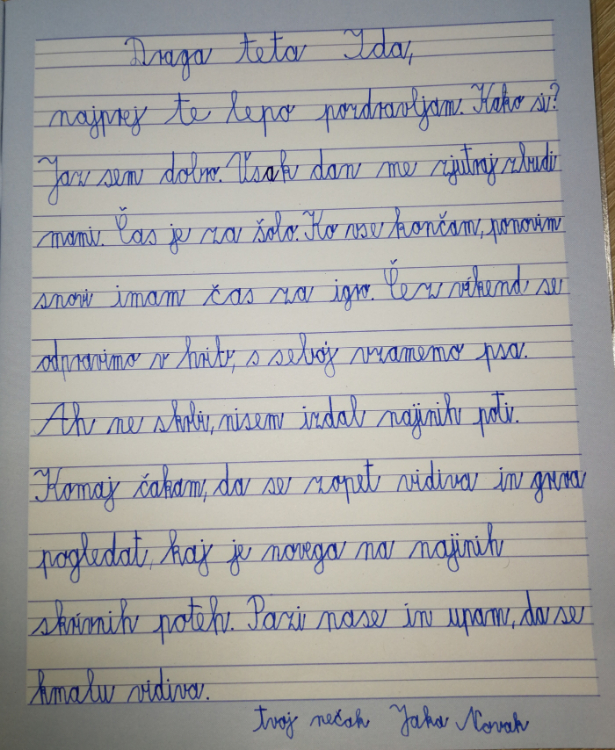 Draga teta Ida,
najprej te lepo pozdravljam. Kako si?
Jaz sem dobro. Vsak dan me zjutraj zbudi
mami. Čas je za šolo. Ko vse končam, ponovim
snovi imam čas za igro. Čez vikend se
odpravimo v hrib, s seboj vzamemo psa.
Ah ne skrbi, nisem izdal najinih poti.
Komaj čakam, da se zopet vidiva in greva
pogledat, kaj je novega na najinih
skrivnih poteh. Pazi nase in upam, da se
kmalu vidiva.
tvoj nečak Jaka Novak